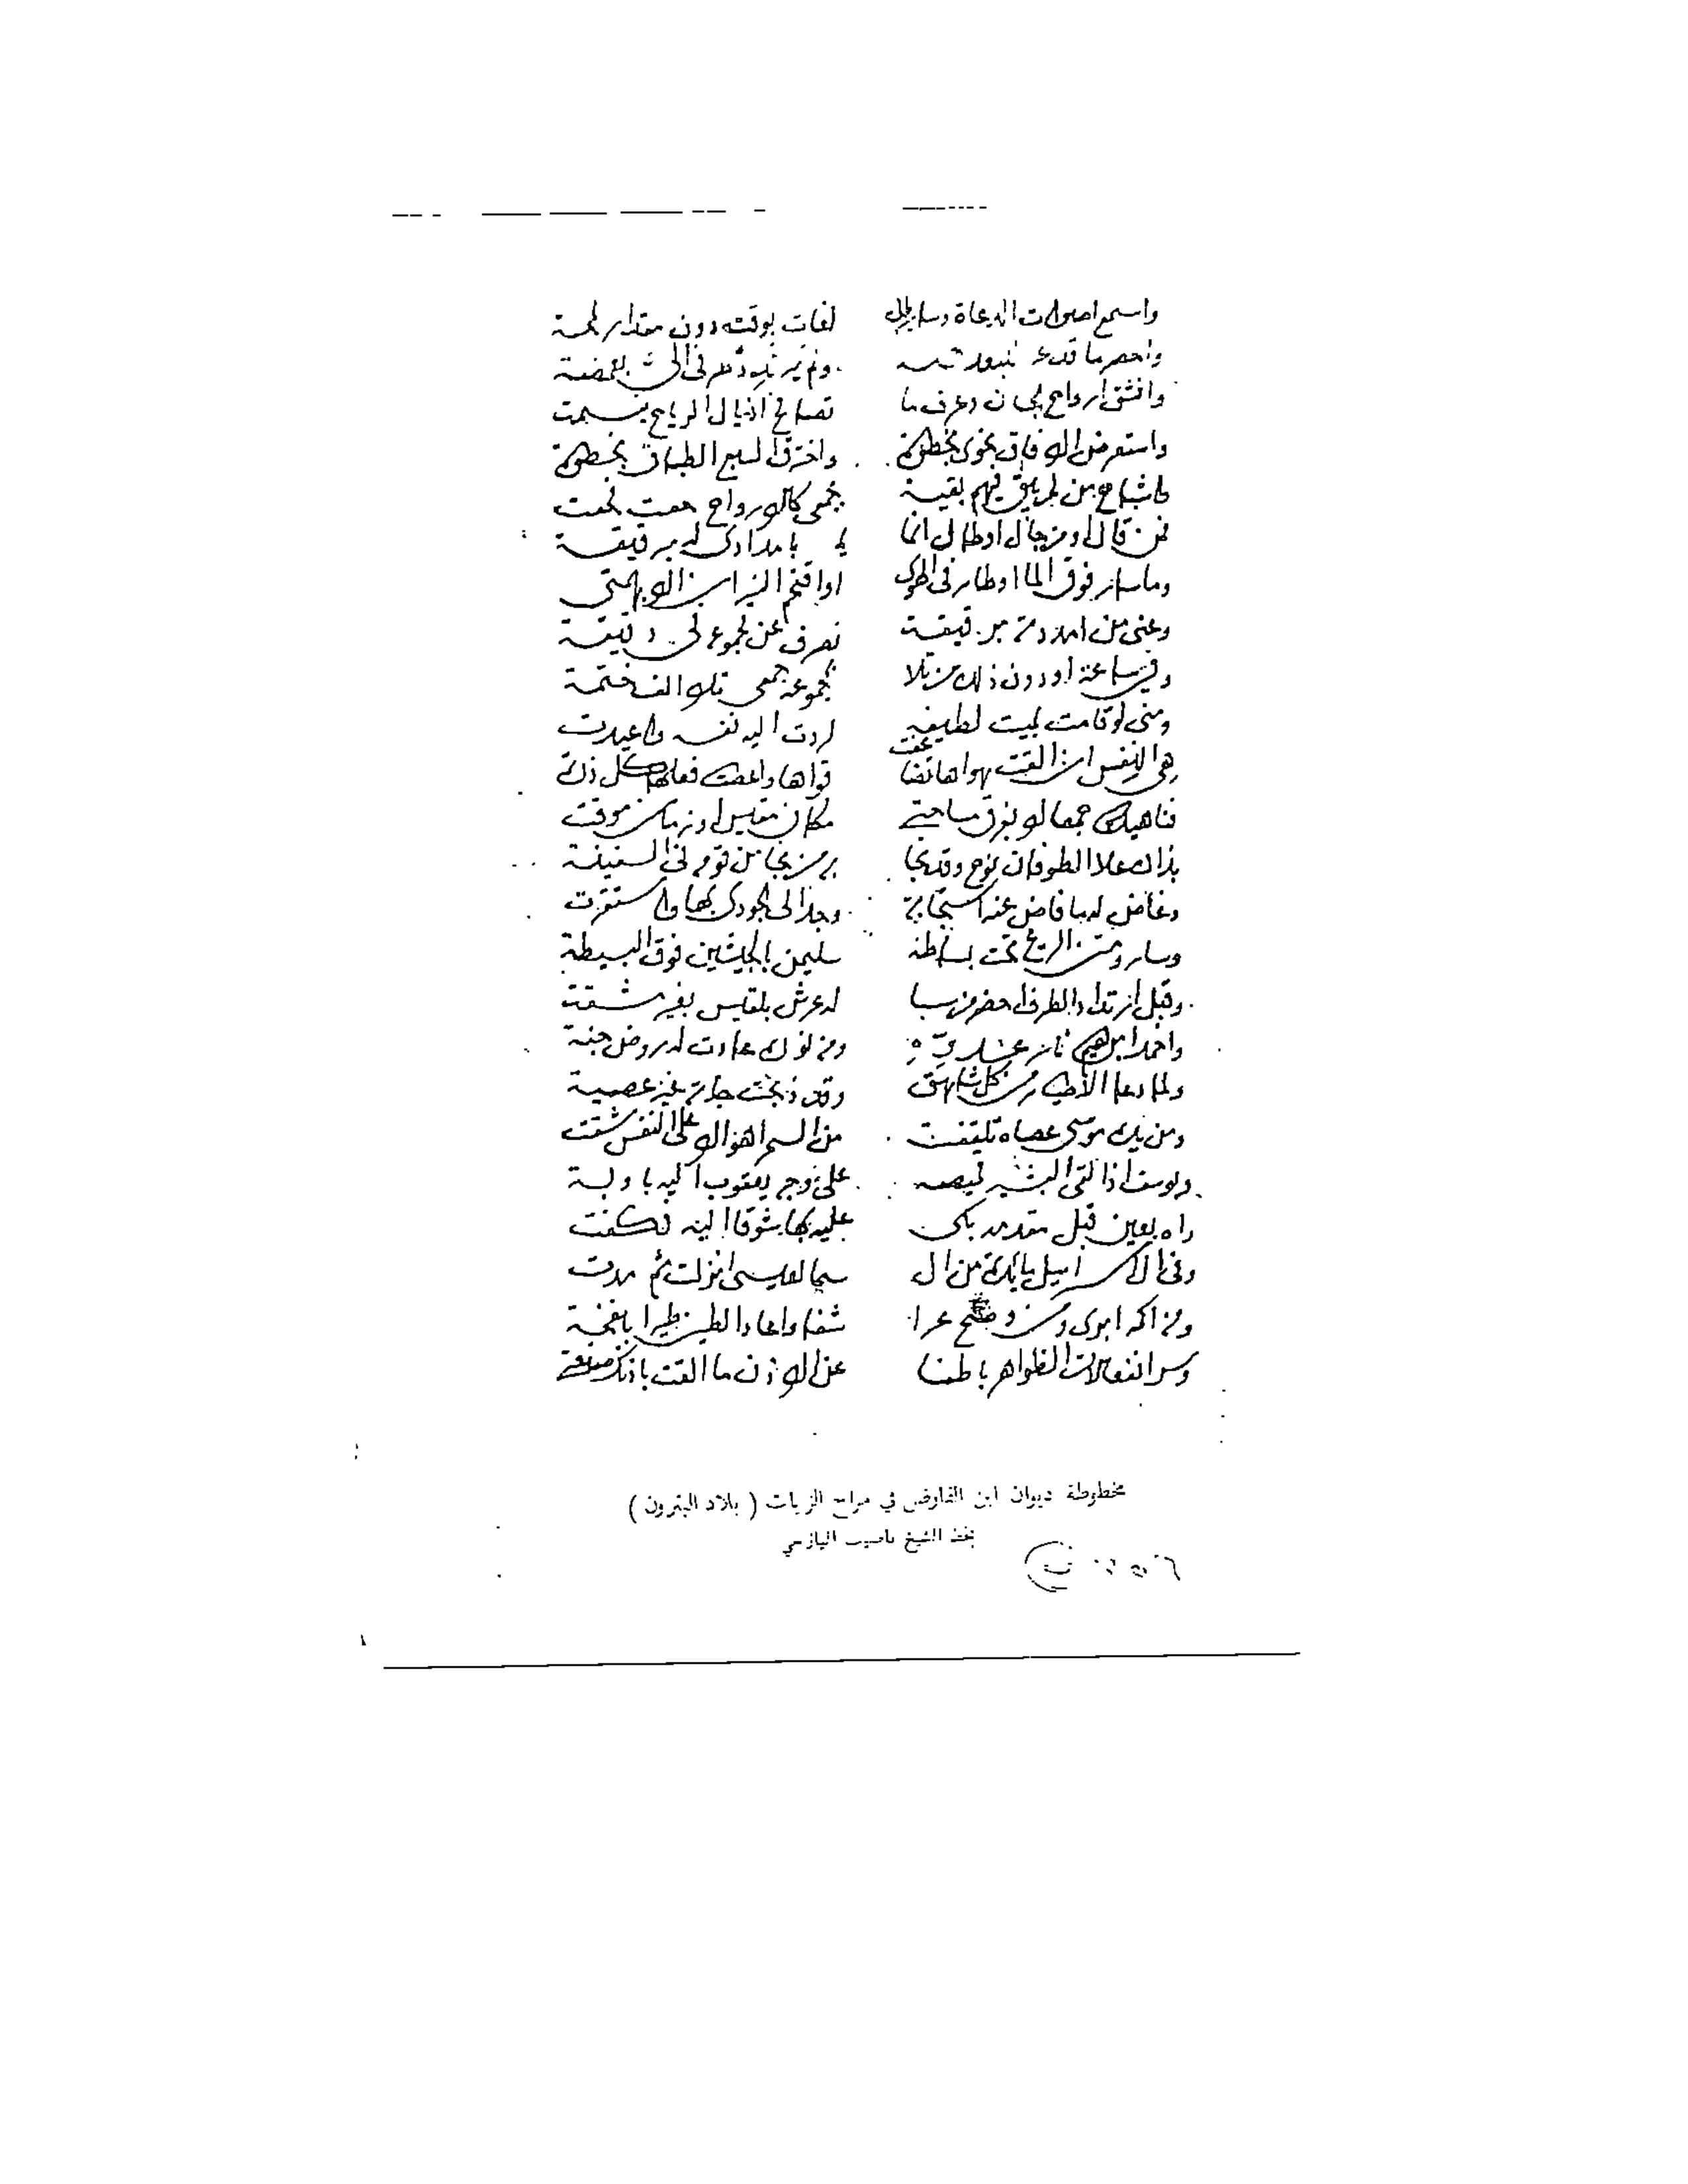 واسمع اصوات الدعاة وسايرال لغات بوقت دون مقدار لمحة
واحضر ما قد عز للبعد حمله ولم يرتدد طرفي الي بغمضة
وانشق ارواح الجنان وعرف ما تصافح اذيال الرياح بنسمت
واستعرض الافاق نحوي بخطرة واخترق السبع الطباق بخطوة
واشباح من لم يبق فيهم بقية بجمعي كالارواح حفت فخفت
فمن قال او من جال او طال انما بامدادي له برقيقة
وما سار فوق الما او طار في الهوى او اقتحم النيران الا بهمتي
وعني من امددته برقيقة تصرف عن مجموعه في دقيقة
وفي ساعة او دون ذلك من تلا بمجموعه جمعي تلا الف ختمة
ومني لو قامت بميت لطيفة لردت اليه نفسه واعيدت
هي النفس ان القت هواها تضاعفت قواها واعطت فعلها كل ذرة
فناهيك جمعا لا بفرق مساحتي مكان مقيس او زمان موقت
بذاك علا الطوفان نوح وقد نجا به من نجا من قومه في السفينة
وغاض له ما فاض عنه استجابة وجد الى الجودي بها واستقرت
وسار ومتن الريح تحت بساطه سليمن بالجيشين فوق البسيطة
وقبل ارتداد الطرف احضر من سبا له عرش بلقيس بغير مشقة
واخمد ابرهيم نار عدوه ومن نوره عادت له روض جنة
ولما دعا الاطيار من كل شاهق وقد ذبحت جاءته غير عصية
ومن يده موسى عصاه تلقفت من السحر اهوالا على النفس شقت
ويوسف اذ القى البشير قميصه على وجه يعقوب اليه باوبة
راه بعين قبل مقدمه بكى عليه بها شوقا اليه فكفت
وفي ال اسراءيل مائدة من ال سما لعيسى انزلت ثم مدت
ومن اكمه ابرى ومن وضح عدا شفا واعاد الطين طيرا بنفخة
وسر انفعالات الظواهر باطنا عن الاذن ما القت باذنك صيغتي
مخطوطة ديوان ابن الفارض في مراح الزيات ( بلاد البترون )
بخط الشيخ ناصيف اليازجي